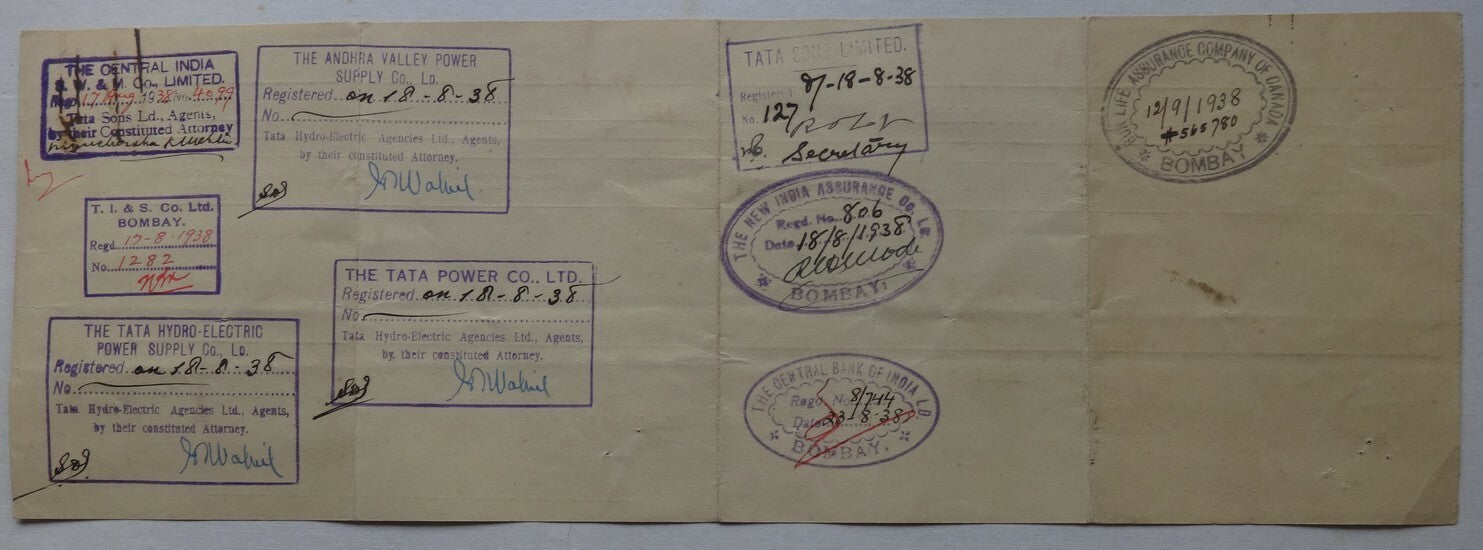 THE CENTRAL INDIA
S. W. & M. Co., LIMITED.
Regd 17 Aug 1938 No. 4099
Tata Sons Ld., Agents,
by their Constituted Attorney
THE ANDHRA VALLEY POWER
SUPPLY Co., LD.
Registered on 18-8-38
No.
Tata Hydro-Electric Agencies Ltd., Agents,
by their constituted Attorney.
T. I. & S. Co. Ltd.
BOMBAY.
Regd. 17-8-1938
No. 1282
THE TATA POWER CO., LTD.
Registered on 18-8-38
No.
Tata Hydro-Electric Agencies Ltd., Agents,
by their constituted Attorney.
THE TATA HYDRO-ELECTRIC
POWER SUPPLY Co., LD.
Registered on 18-8-38
No.
Tata Hydro-Electric Agencies Ltd., Agents,
by their constituted Attorney.
TATA SONS LIMITED.
Registered 18-8-38
No. 127
Secretary
THE NEW INDIA ASSURANCE CO. LD
Regd. No. 806
Date 18/8/1938
BOMBAY.
THE CENTRAL BANK OF INDIA LD.
Regd. No. 8/744
Date 23-8-38
BOMBAY.
SUN LIFE ASSURANCE COMPANY OF CANADA
12/9/1938
565780
BOMBAY